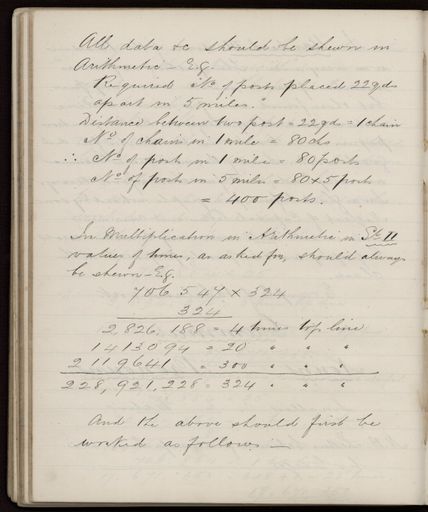 All data &c should be shewn in
Arithmetic - E.g.
"Required No of posts placed 22yds
apart in 5 miles."
Distance between two posts = 22yds = 1 chain
No of chains in 1 mile = 80 chs
∴ No of posts in 1 mile = 80 posts
No of posts in 5 miles = 80 x 5 posts
= 400 posts.
In Multiplication in Arithmetic in St II
values of lines, as asked for, should always
be shewn - E.g.
706547 x 324
324
2,826,188 = 4 times top line
1413094 = 20 " " "
2119641 = 300 " " "
228,921,228 = 324 " " "
And the above should first be
worked as follows -